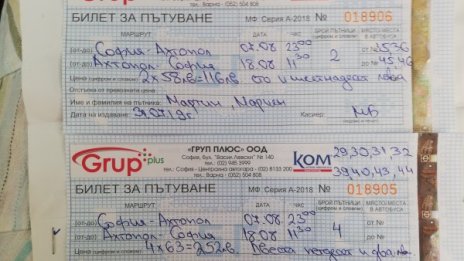 тел.: Варна - (052) 504 808
БИЛЕТ ЗА ПЪТУВАНЕ МФ Серия А-2018 № 018906
МАРШРУТ ДАТА ЧАС БРОЙ ПЪТНИЦИ № МЯСТО В АВТОБУСА
(от-до) София-Ахтопол 07.08 23⁰⁰ 2 35,36
(от-до) Ахтопол-София 18.08 11³⁰ 45,46
Цена (цифром и словом) 2x58лв=116лв сто и шестнадесет лева
Отстъпка от превозната цена
Име и фамилия на пътника: Мартин Мариен
Дата на издаване: 31.07.19г. Касиер:
Grup plus
„ГРУП ПЛЮС" ООД
София, бул. "Васил Левски" № 140
тел.: София - Централна автогара - (02) 8133 200
тел.: Варна - (052) 504 808
КОМ
29,30,31,32
39,40,43,44
БИЛЕТ ЗА ПЪТУВАНЕ МФ Серия А-2018 № 018905
МАРШРУТ ДАТА ЧАС БРОЙ ПЪТНИЦИ № МЯСТО В АВТОБУСА
(от-до) София-Ахтопол 07.08 23⁰⁰ 4
(от-до) Ахтопол-София 18.08 11³⁰
Цена (цифром и словом) 4x63=252лв Двеста петдесет и два лв